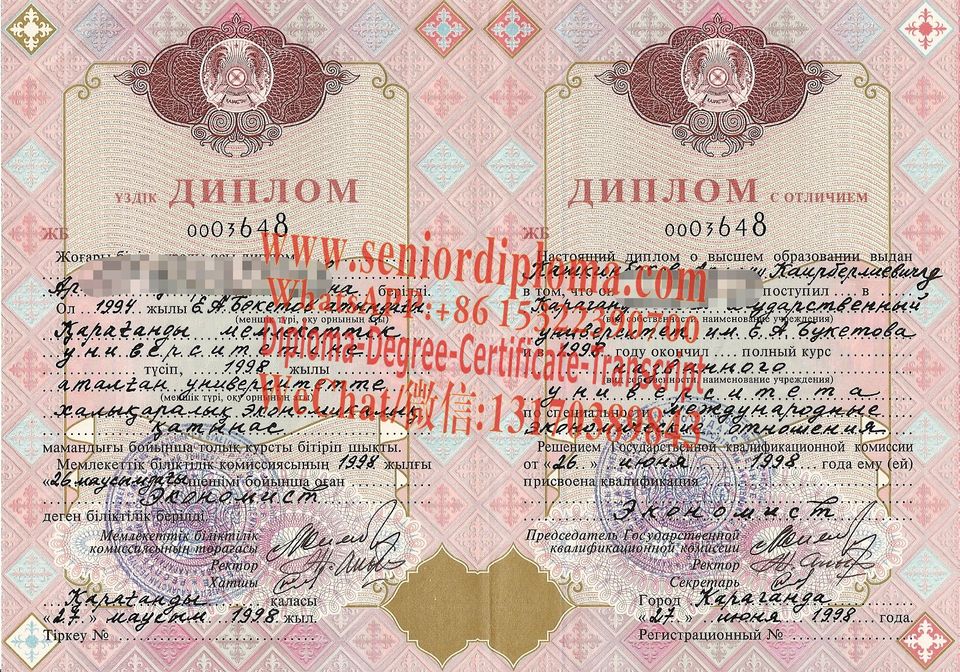 ҚАЗАҚСТАН
ҮЗДІК ДИПЛОМ
ЖБ 0003648
Жоғары
берілді.
Ол 1994 жылы Е.А.Бөкетов атындағы
(меншік түрі, оқу орнының аты)
Қарағанды мемлекеттік
университетіне
түсіп, 1998 жылы
аталған университетте
(меншік түрі, оқу орнының аты)
халықаралық экономикалық
қатынас
мамандығы бойынша толық курсты бітіріп шықты.
Мемлекеттік біліктілік комиссиясының 1998 жылғы
«26 маусымдағы шешімі бойынша оған
Экономист
деген біліктілік берілді.
Мемлекеттік біліктілік
комиссиясының төрағасы
Ректор
Хатшы
Қарағанды қаласы
«27» маусым 1998 жыл.
Тіркеу №
ҚАЗАҚСТАН
ДИПЛОМ С ОТЛИЧИЕМ
ЖБ 0003648
Настоящий диплом о высшем образовании выдан
Каирбергиевичу
в том, что он поступил в
Караган государственный
(вид собственности, наименование учреждения)
университет им. Е.А. Букетова
и в 1998 году окончил полный курс
названного
(вид собственности, наименование учреждения)
университета
по специальности международные
экономические отношения
Решением Государственной квалификационной комиссии
от «26» июня 1998 года ему (ей)
присвоена квалификация
Экономист
Председатель Государственной
квалификационной комиссии
Ректор
Секретарь
Город Караганда
«27» июня 1998 года.
Регистрационный №
www.seniordiplom.com
WhatsAPP:+86
Diploma-Degree-Certificate-Transcript
WeChat/微信: